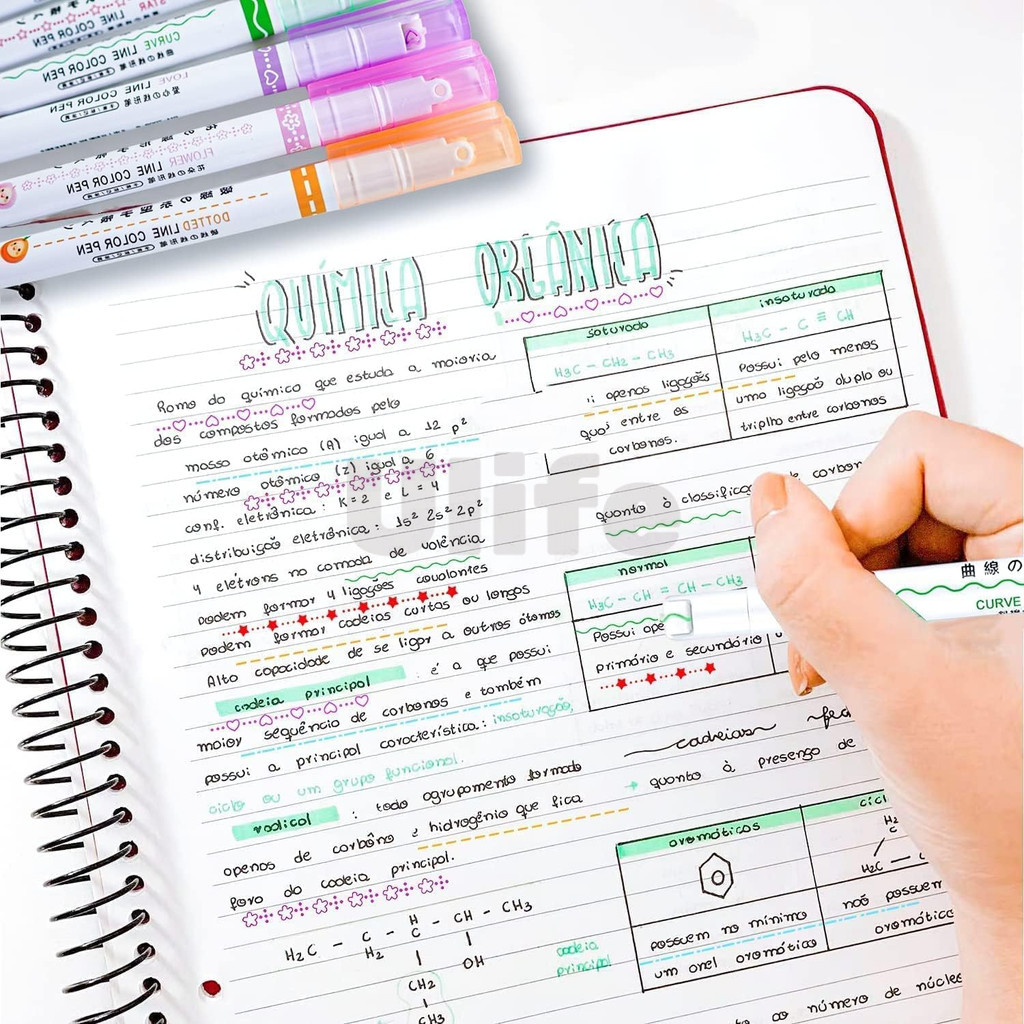 STAR
LINE COLOR PEN
CURVE LINE COLOR PEN
LOVE LINE COLOR PEN
FLOWER LINE COLOR PEN
DOTTED LINE COLOR PEN
QUÍMICA ORGÂNICA
Ramo da química que estuda a maioria
dos compostos formados pelo
massa atômica (A) igual a 12 p²
número atômico (z) igual a 6
conf. eletrônica: K = 2 e L = 4
distribuição eletrônica: 1s² 2s² 2p²
4 elétrons na camada de valência
podem formar 4 ligações covalentes
podem formar cadeias curtas ou longas
Alta capacidade de se ligar a outros átomos
cadeia principal : é a que possui
maior sequência de carbonos e também
possui a principal característica: insaturação,
ciclo ou um grupo funcional.
radical : todo agrupamento formado
apenas de carbono e hidrogênio que fica
fora da cadeia principal.
H
H₂C - C - C - CH - CH₃
H₂ OH
CH₂
CH₃
cadeia
principal
saturada
H₃C - CH₂ - CH₃
apenas ligações
entre os
carbonos.
insaturada
H₃C - C ≡ CH
Possui pelo menos
uma ligação dupla ou
tripla entre carbonos
Ulife
quanto à
normal
H₃C - CH = CH - CH₃
Possui
primário e secundário
曲線の
CURVE
cadeias
→ quanto à presença de
aromáticas
possuem no mínimo
um anel aromático
H₂
C
H₂C -
não possuem
aromático
ao número de